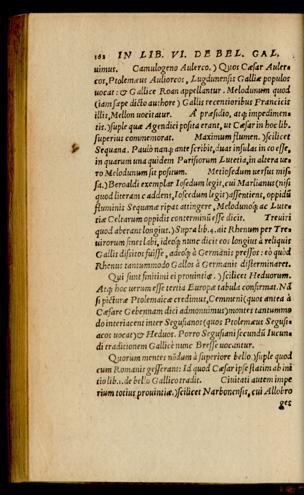 162 IN LIB. VI. DE BEL. GAL.
uimus. Camulogeno Aulerco.) Quos Cæsar Auler-
cos, Ptolemæus Auliorcos, Lugdunensis Galliæ populos
uocat: & Gallicè Roan appellantur. Melodunum quod
(iam sæpe dicto authore) Gallis recentioribus Francicis
illis, Mellon uocitatur. A præsidio, atq; impedimen-
tis.) suple quæ Agendici posita erant, ut Cæsar in hoc lib.
superius commemorat. Maximum flumen.) scilicet
Sequana. Paulo nanq; ante scribit, duas insulas in eo esse,
in quarum una quidem Parisiorum Lutetia, in altera ue-
ro Melodunum sit positum. Metiosedum uersus mis-
sa.) Beroaldi exemplar Iosedum legit, cui Marlianus (nisi
quod literam c addens, Iosecdum legit) assentiens, oppidū
fluminis Sequanæ ripas attingere, Melodunoq; ac Lute-
tiæ Celtarum oppidis conterminū esse dicit. Treuiri
quod aberant longius.) Supra lib. 4. ait Rhenum per Tre-
uirorum fines labi, ideoq; nunc dicit eos longius à reliquis
Gallis disitos fuisse, adeoq; à Germanis pressos: eò quòd
Rhenus tantummodo Gallos à Germanis disterminaret.
Qui sunt finitimi ei prouintiæ.) scilicet Heduorum.
Atq; hoc uerum esse tertia Europæ tabula confirmat. Nā
si picturæ Ptolemaicæ credimus, Cemmeni (quos antea à
Cæsare Gebennam dici admonuimus) montes tantummo
do interiacent inter Segusianos (quos Ptolemæus Segusi-
acos uocat) & Heduos. Porro Segusiani secundū Iucun-
di traditionem Gallicè nunc Bresse uocantur.
Quorum mentes nōdum à superiore bello.) suple quod
cum Romanis gesserant: Id quod Cæsar ipse statim ab ini
tio lib. 1. de bello Gallico tradit. Ciuitati autem impe
rium totius prouintiæ.) scilicet Narbonensis, cui Allobro
ges